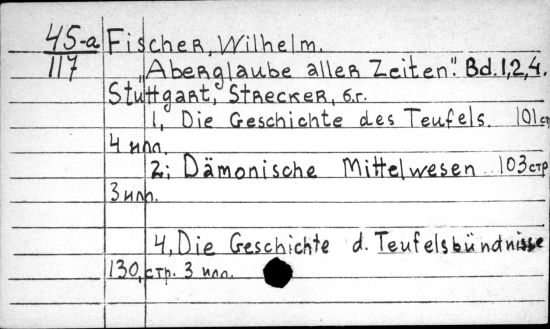 45-а Fischer, Wilhelm.
117
"Aberglaube aller Zeiten". Bd. 1,2,4.
Stuttgart, Strecker, б.г.
1, Die Geschichte des Teufels. 101 ст
4 илл.
2; Dämonische Mittelwesen 103 стр
3 илл.
4, Die Geschichte d. Teufelsbündnisse
130, стр. 3 илл.